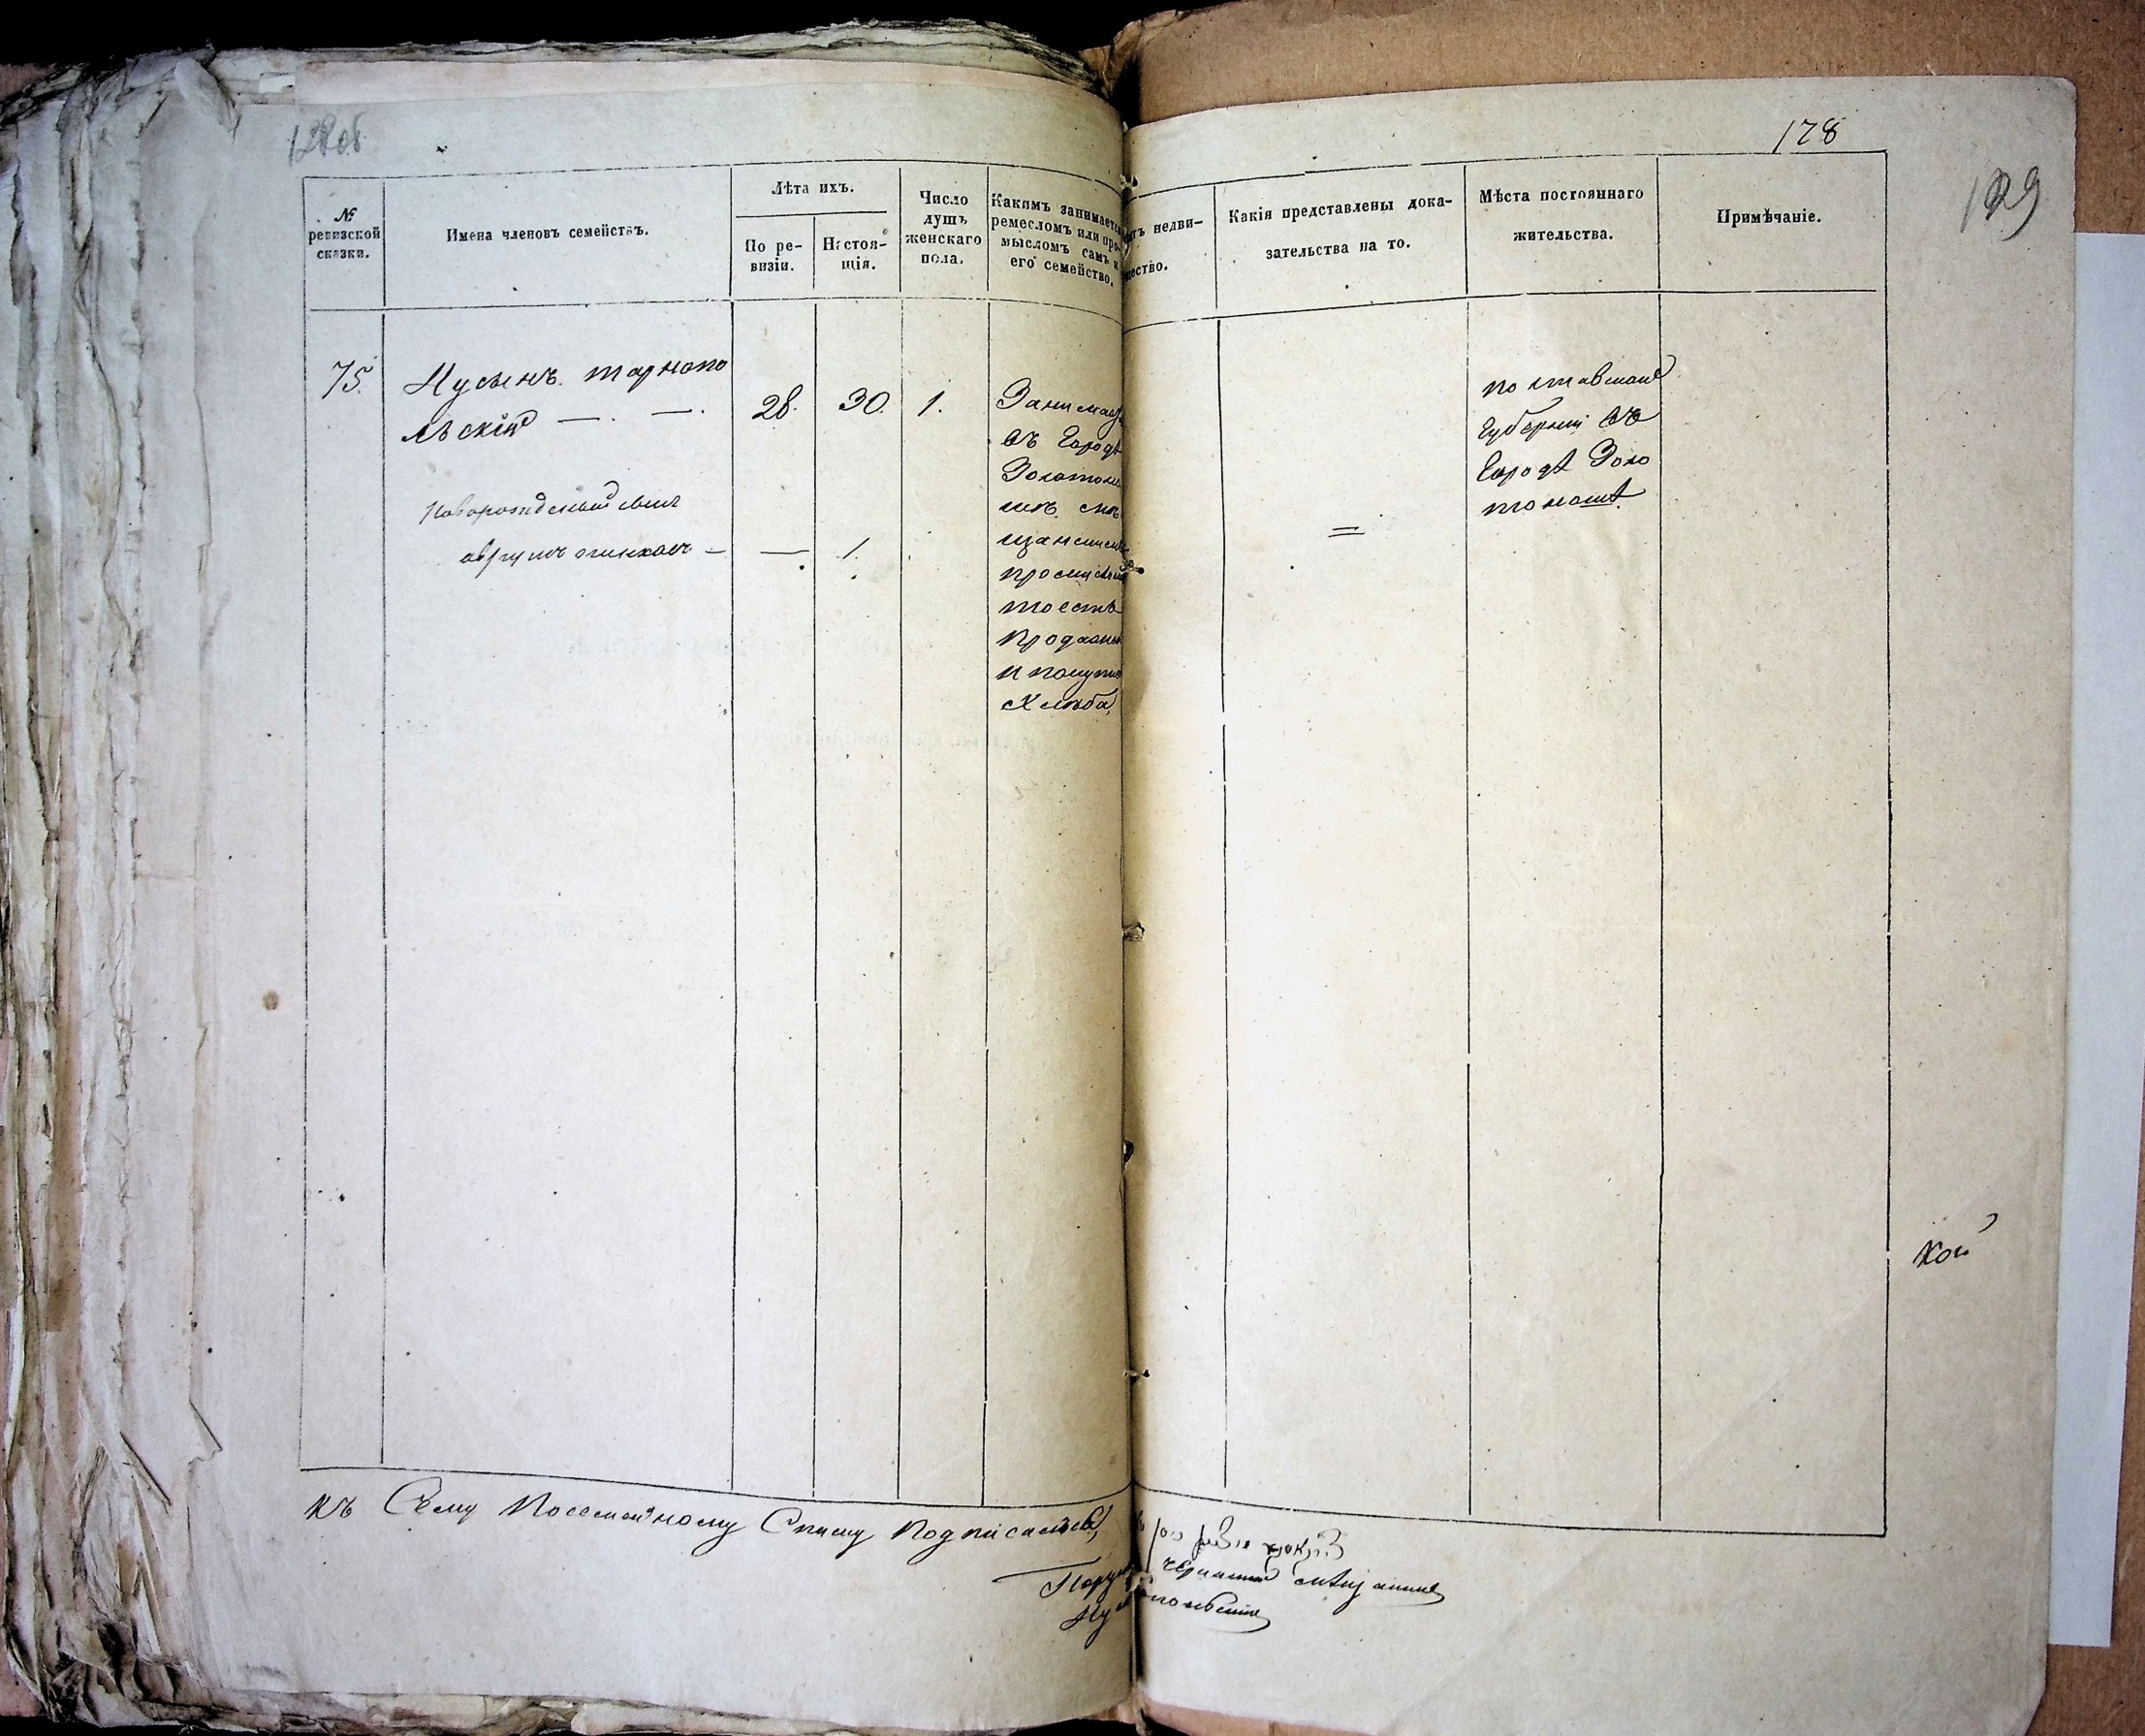 128об.
178
129
№
ревизской
сказки.
Имена членовъ семействъ.
Лѣта ихъ.
По ре-
визіи.
Настоя-
щія.
Число
душъ
женскаго
пола.
Какимъ занимается
ремесломъ или про-
мысломъ самъ и
его семейство.
недви-
Какія представлены дока-
зательства на то.
Мѣста постояннаго
жительства.
Примѣчаніе.
75. Нусынъ тарнопо
льскій — . — . 28. 30. 1.
Новорожденный сынъ
— — 1.
Занимает
въ Городѣ
Золотоно
шѣ мѣ
щанским
промысло
тоесть
Продажы
и покупко
Хлѣба,
=
полтавской
Губерніи въ
Городѣ Золо
тоношѣ.
кой
Къ Сему Посемейному Списку Подписался,